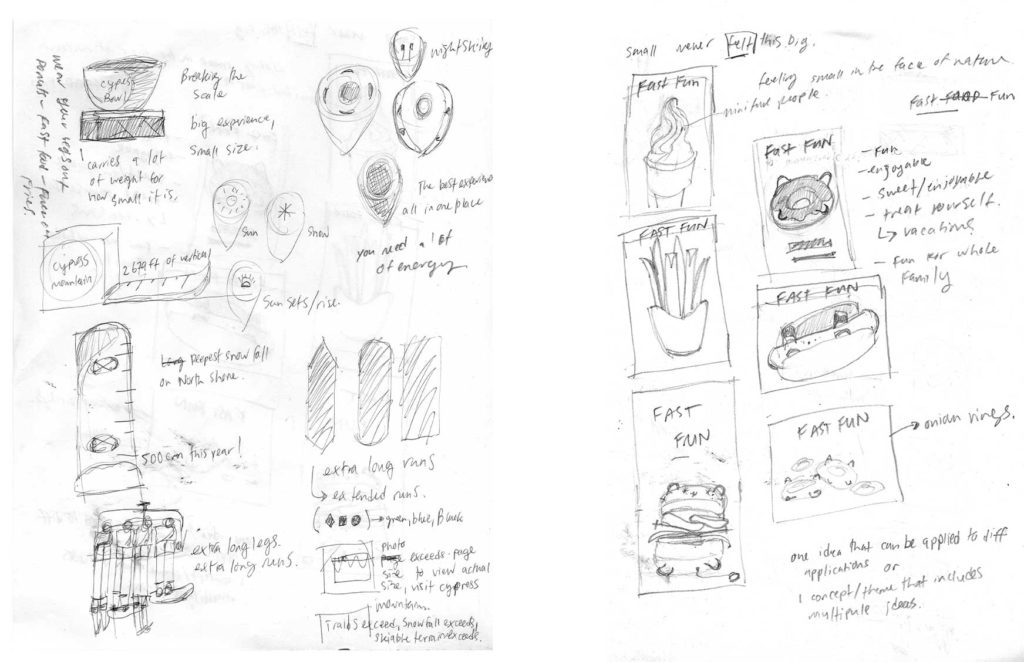 wear your legs out
Donuts - Fast food - Fun on
Fries.
cypress
Bowl
Breaking the
scale
big experience,
small size.
carries a lot
of weight for
how small it is.
night skiing
The best experience
all in one place
Sun
Snow
you need a lot
of energy
cypress
mountain
ft of vertical
Sun sets/rise.
Long Deepest snow fall
on North shore.
500cm this year!
extra long runs
extended runs.
green, blue, Black
extra long legs.
extra long runs.
photo
page exceeds page
size to view actual
size, visit cypress
mountain.
Trails exceed, snowfall exceeds,
skiable terrain exceeds.
small never felt this big.
feeling small in the face of nature
miniture people.
FAST FUN
Fast FOOD Fun
FAST FUN
- Fun
- enjoyable
- sweet/enjoyable
- treat yourself.
vacations
- fun for whole
family
FAST FUN
FAST FUN
FAST
FUN
FAST FUN
onion rings.
one idea that can be applied to diff
applications or
1 concept/theme that includes
multipule ideas.